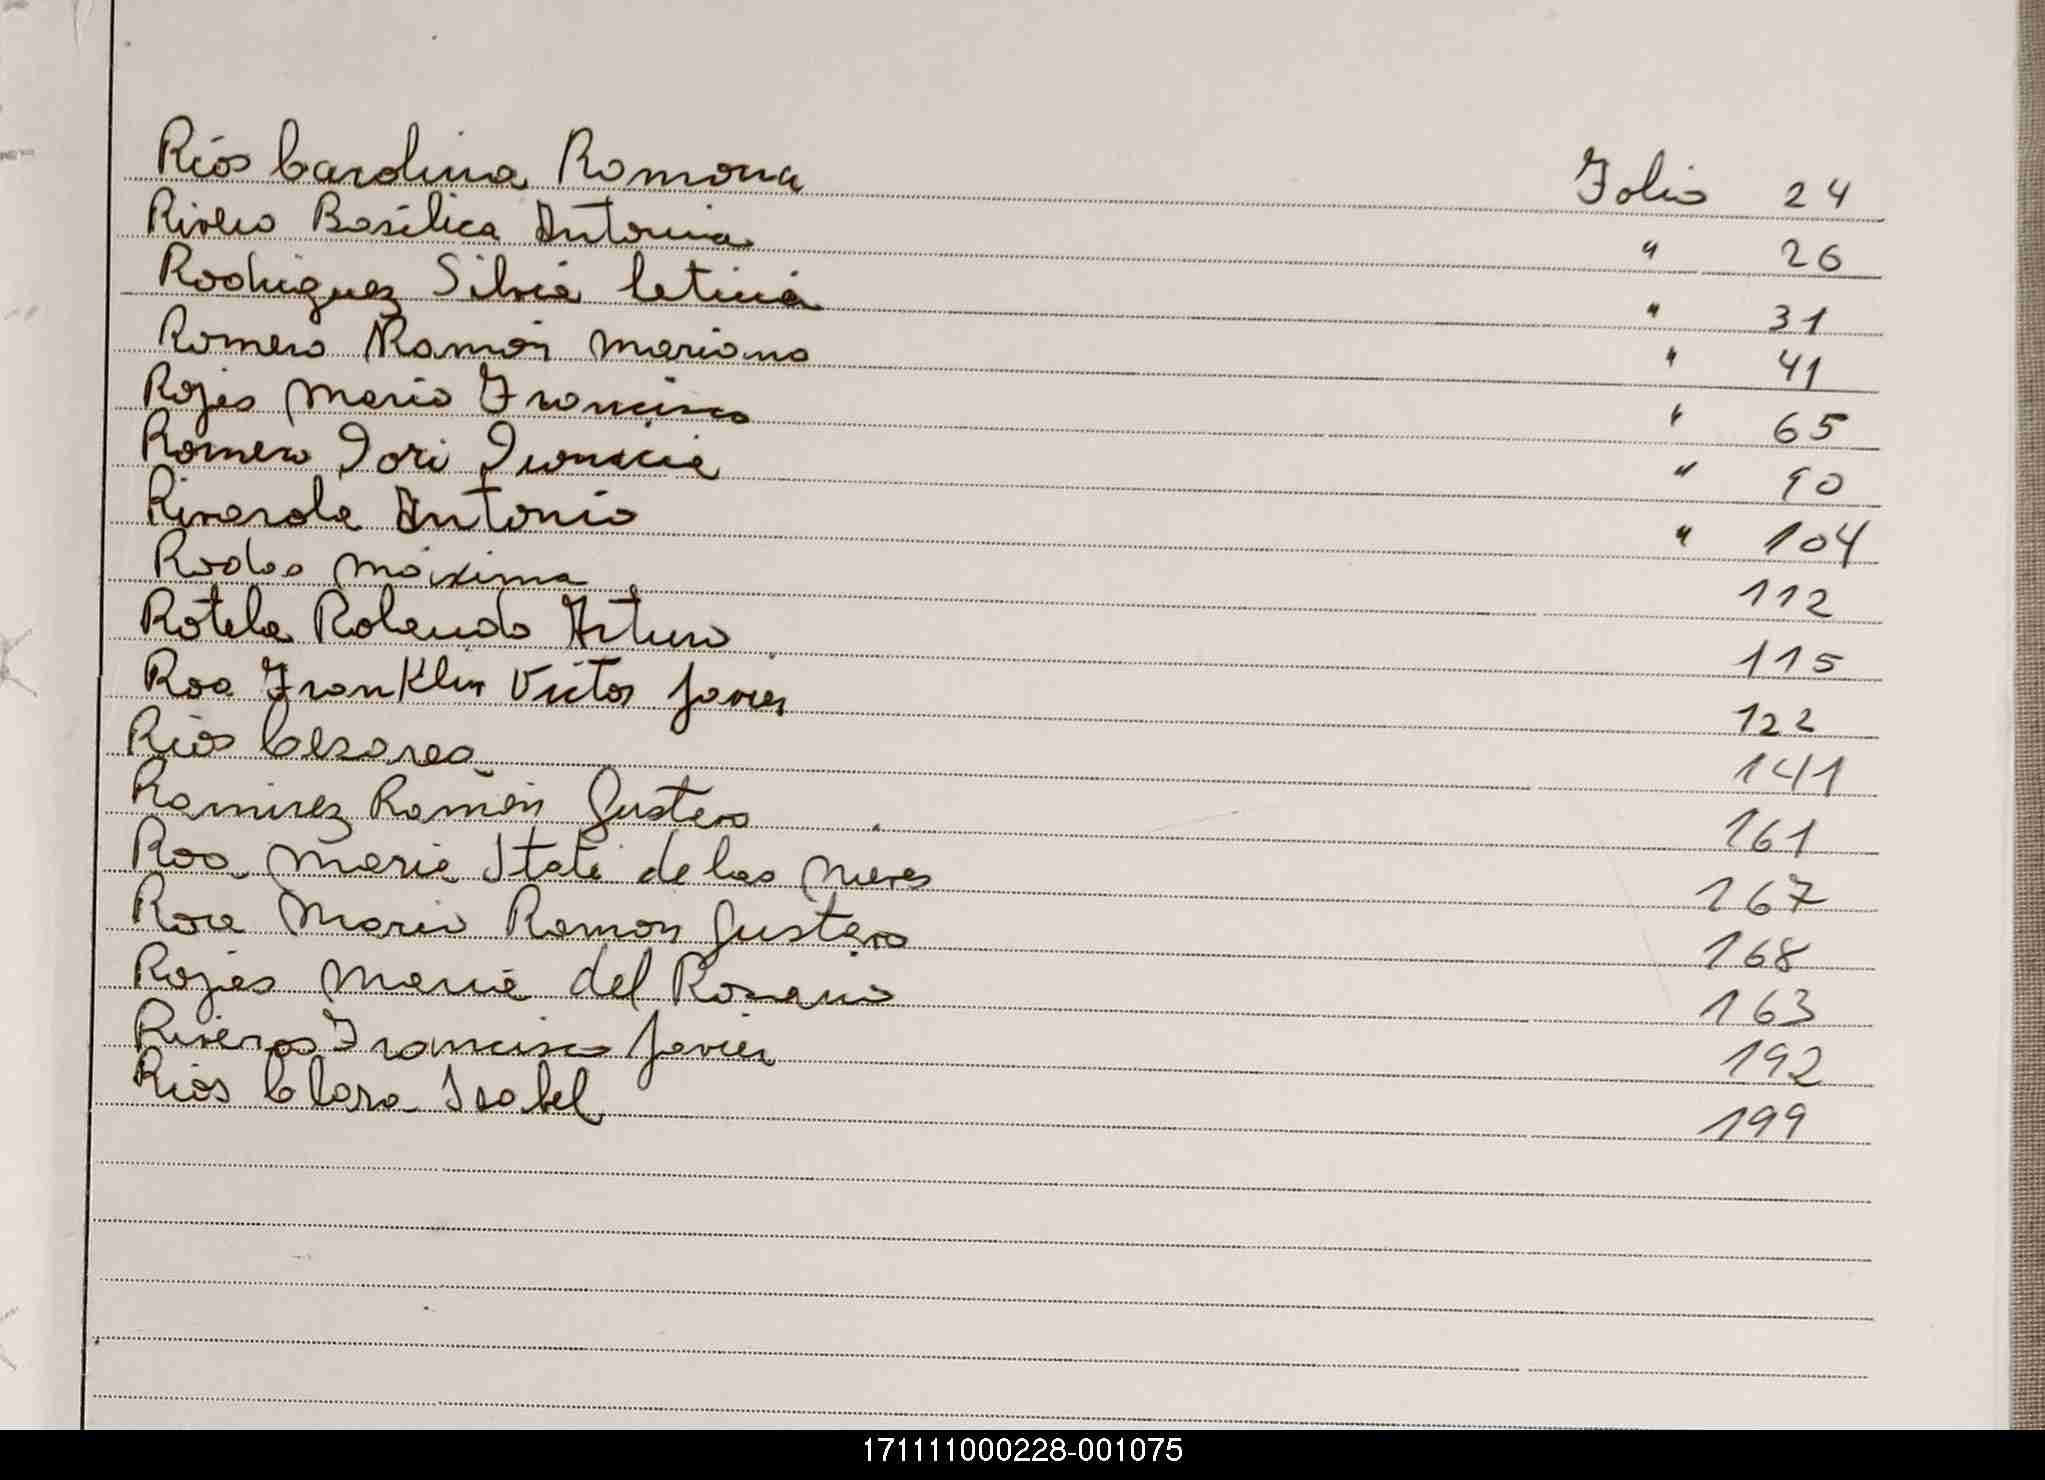 Ríos Carolina Ramona Folio 24
Rivero Basílica Antonia " 26
Rodriguez Silvia Leticia " 31
Romero Ramón Mariano " 41
Rojas Mario Francisco " 65
Romero " 90
Riverola Antonio " 104
Rodas Máxima 112
Rotela Rolando Arturo 115
Roa Franklin Victor Javier 122
Ríos Cesarea 141
Ramirez Ramón Gustavo 161
Roa Maria Itatí de las Nieves 167
Roa Mario Ramon Gustavo 168
Rojas Maria del Rosario 163
Riveros Francisco Javier 192
Ríos Clara Isabel 199
171111000228-001075